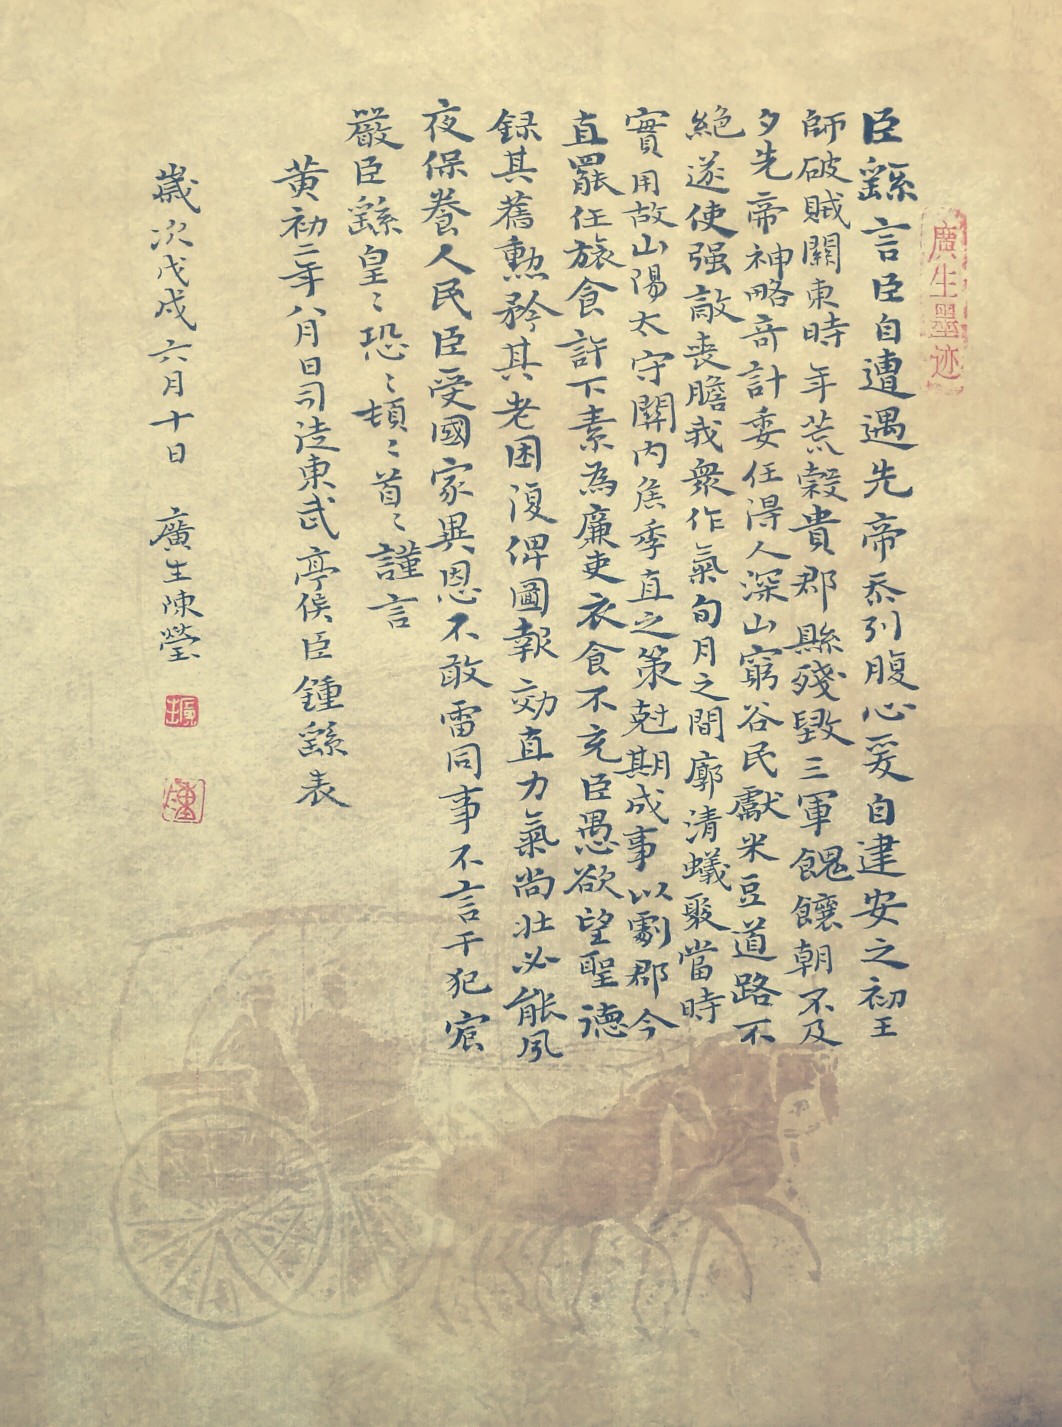 廣生墨迹
臣繇言臣自遭遇先帝忝列腹心爰自建安之初王
師破賊關東時年荒穀貴郡縣殘毀三軍餽饟朝不及
夕先帝神略奇計委任得人深山窮谷民獻米豆道路不
絶遂使强敵喪膽我衆作氣旬月之間廓清蟻聚當時
實用故山陽太守關內侯季直之策尅期成事以劇郡今
直罷任旅食許下素為廉吏衣食不充臣愚欲望聖德
録其舊勲矜其老困復俾圖報効直力氣尚壯必能夙
夜保養人民臣受國家異恩不敢雷同事不言干犯宸
嚴臣繇皇〻恐〻頓〻首〻謹言
黄初二年八月日司徒東武亭侯臣鍾繇表
歲次戊戌六月十日 廣生陳瑩